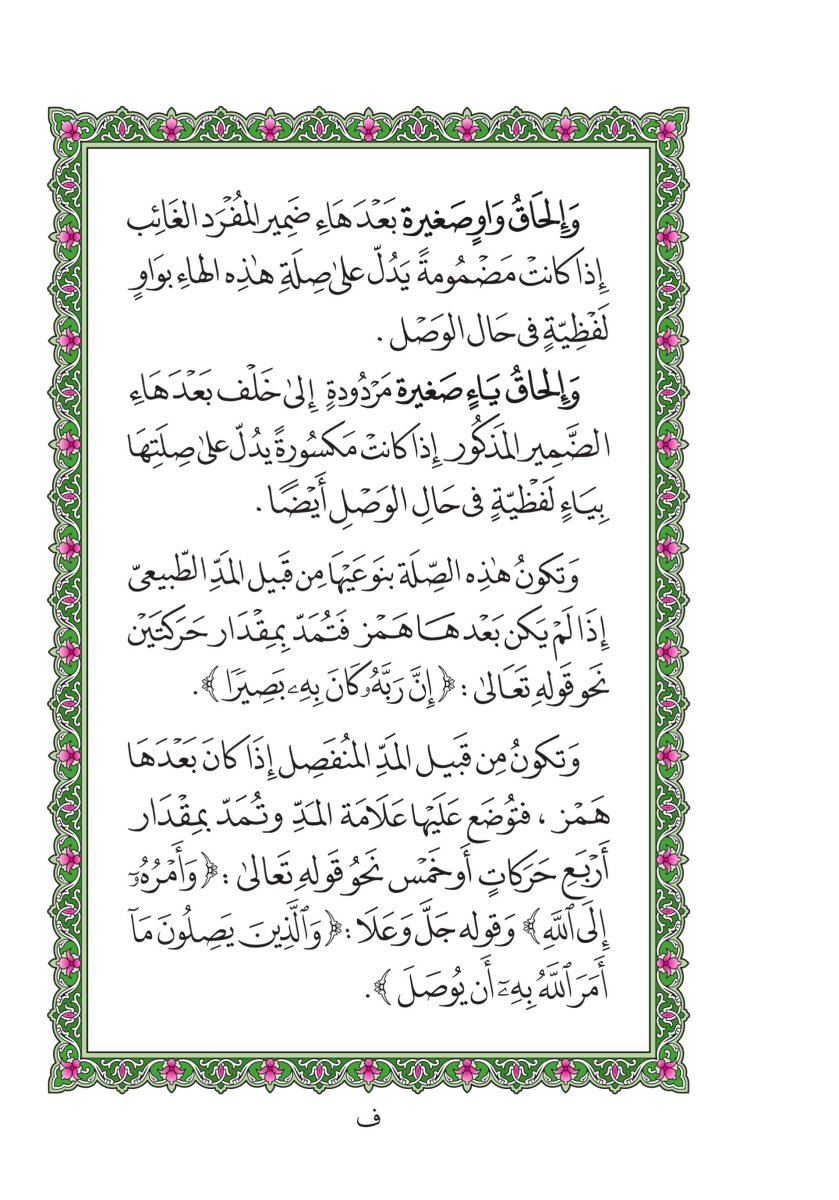 وَإِلحَاقُ وَاوٍ صَغيرة بَعْدَ هَاءِ ضَمِير المُفْرَد الغَائِب
إِذا كانتْ مَضْمُومةً يَدُلّ علىٰ صِلَةِ هٰذِه الهاءِ بوَاوٍ
لَفْظِيّةٍ فى حَال الوَصْل .
وَإِلحاقُ يَاءٍ صَغيرة مَرْدُودةٍ إلىٰ خَلْف بَعْدَ هَاءِ
الضَّمِير المَذكُور إِذا كانتْ مَكسُورةً يدُلّ علىٰ صِلَتِهَا
بِيَاءٍ لَفْظيّةٍ فى حَالِ الوَصْلِ أَيْضًا .
وَتكونُ هٰذِه الصِّلَة بنَوعَيْهَا مِن قَبيل المَدِّ الطّبيعىّ
إِذَا لَمْ يَكن بَعْدهَا هَمْز فَتُمَدّ بمِقْدَار حَرَكتَيْن
نَحو قَولهِ تَعَالىٰ : ﴿ إِنَّ رَبَّهُۥ كَانَ بِهِۦ بَصِيرٗا ﴾ .
وَتكونُ مِن قَبيل المَدِّ المُنْفَصِل إِذَا كانَ بَعْدَهَا
هَمْز ، فتُوضَع عَلَيْها عَلَامَة المَدِّ وتُمَدّ بمِقْدَار
أَرْبَعِ حَرَكاتٍ أَو خَمْس نَحوُ قَولهِ تَعَالىٰ : ﴿ وَأَمۡرُهُۥٓ
إِلَى ٱللَّهِ ﴾ وَقوله جَلَّ وَعَلَا : ﴿ وَٱلَّذِينَ يَصِلُونَ مَآ
أَمَرَ ٱللَّهُ بِهِۦٓ أَن يُوصَلَ ﴾ .
ف